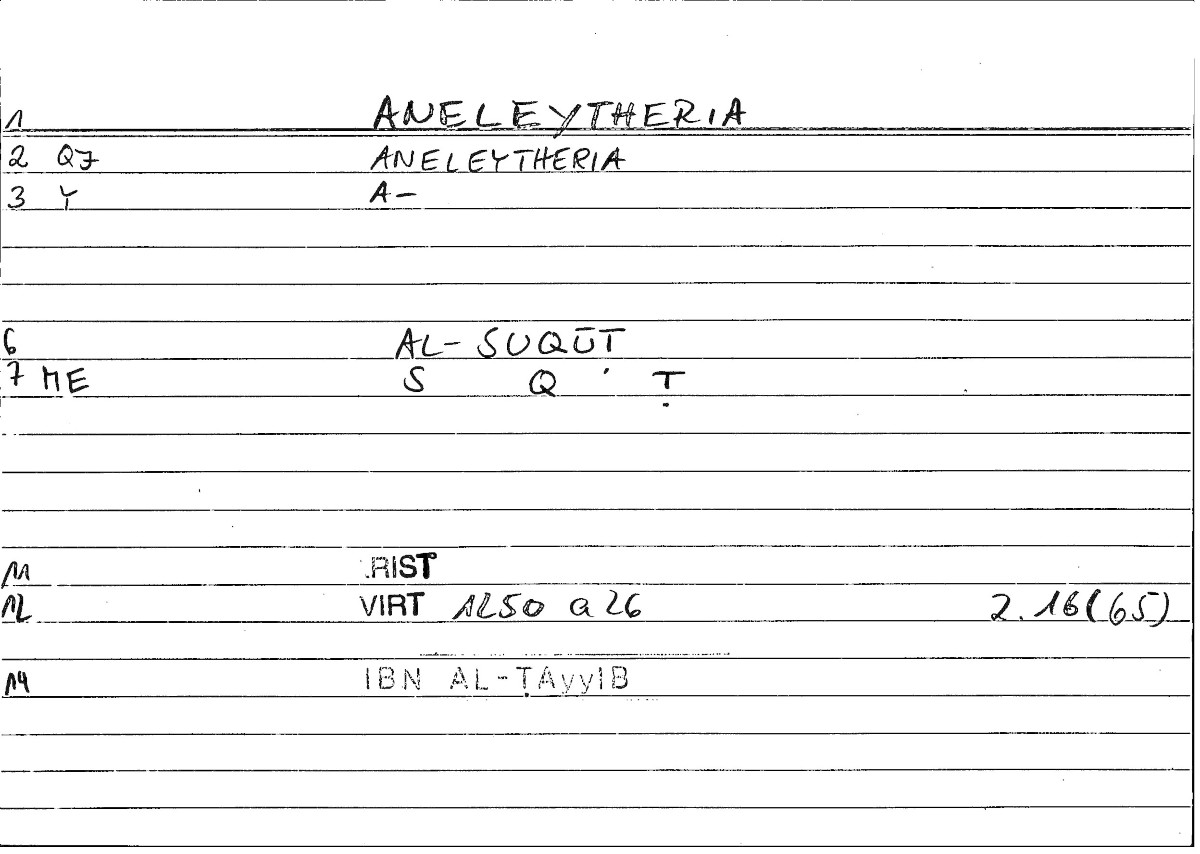 1 ANELEYTHERIA
2 QJ ANELEYTHERIA
3 Y A-
6 AL-SUQŪT
7 ME S Q ' Ṭ
11 .RIST
12 VIRT 1250 a 26 2.16(65)
14 IBN AL-ṬAyyIB